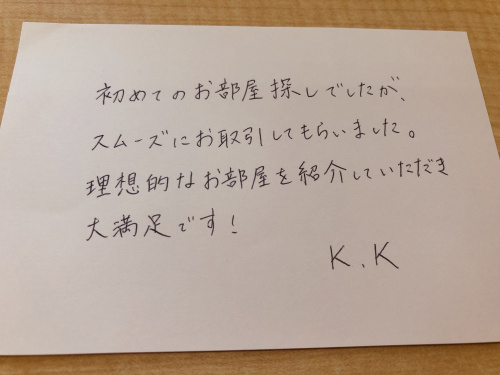 初めてのお部屋探しでしたが、
スムーズにお取引してもらいました。
理想的なお部屋を紹介していただき
大満足です！
K.K